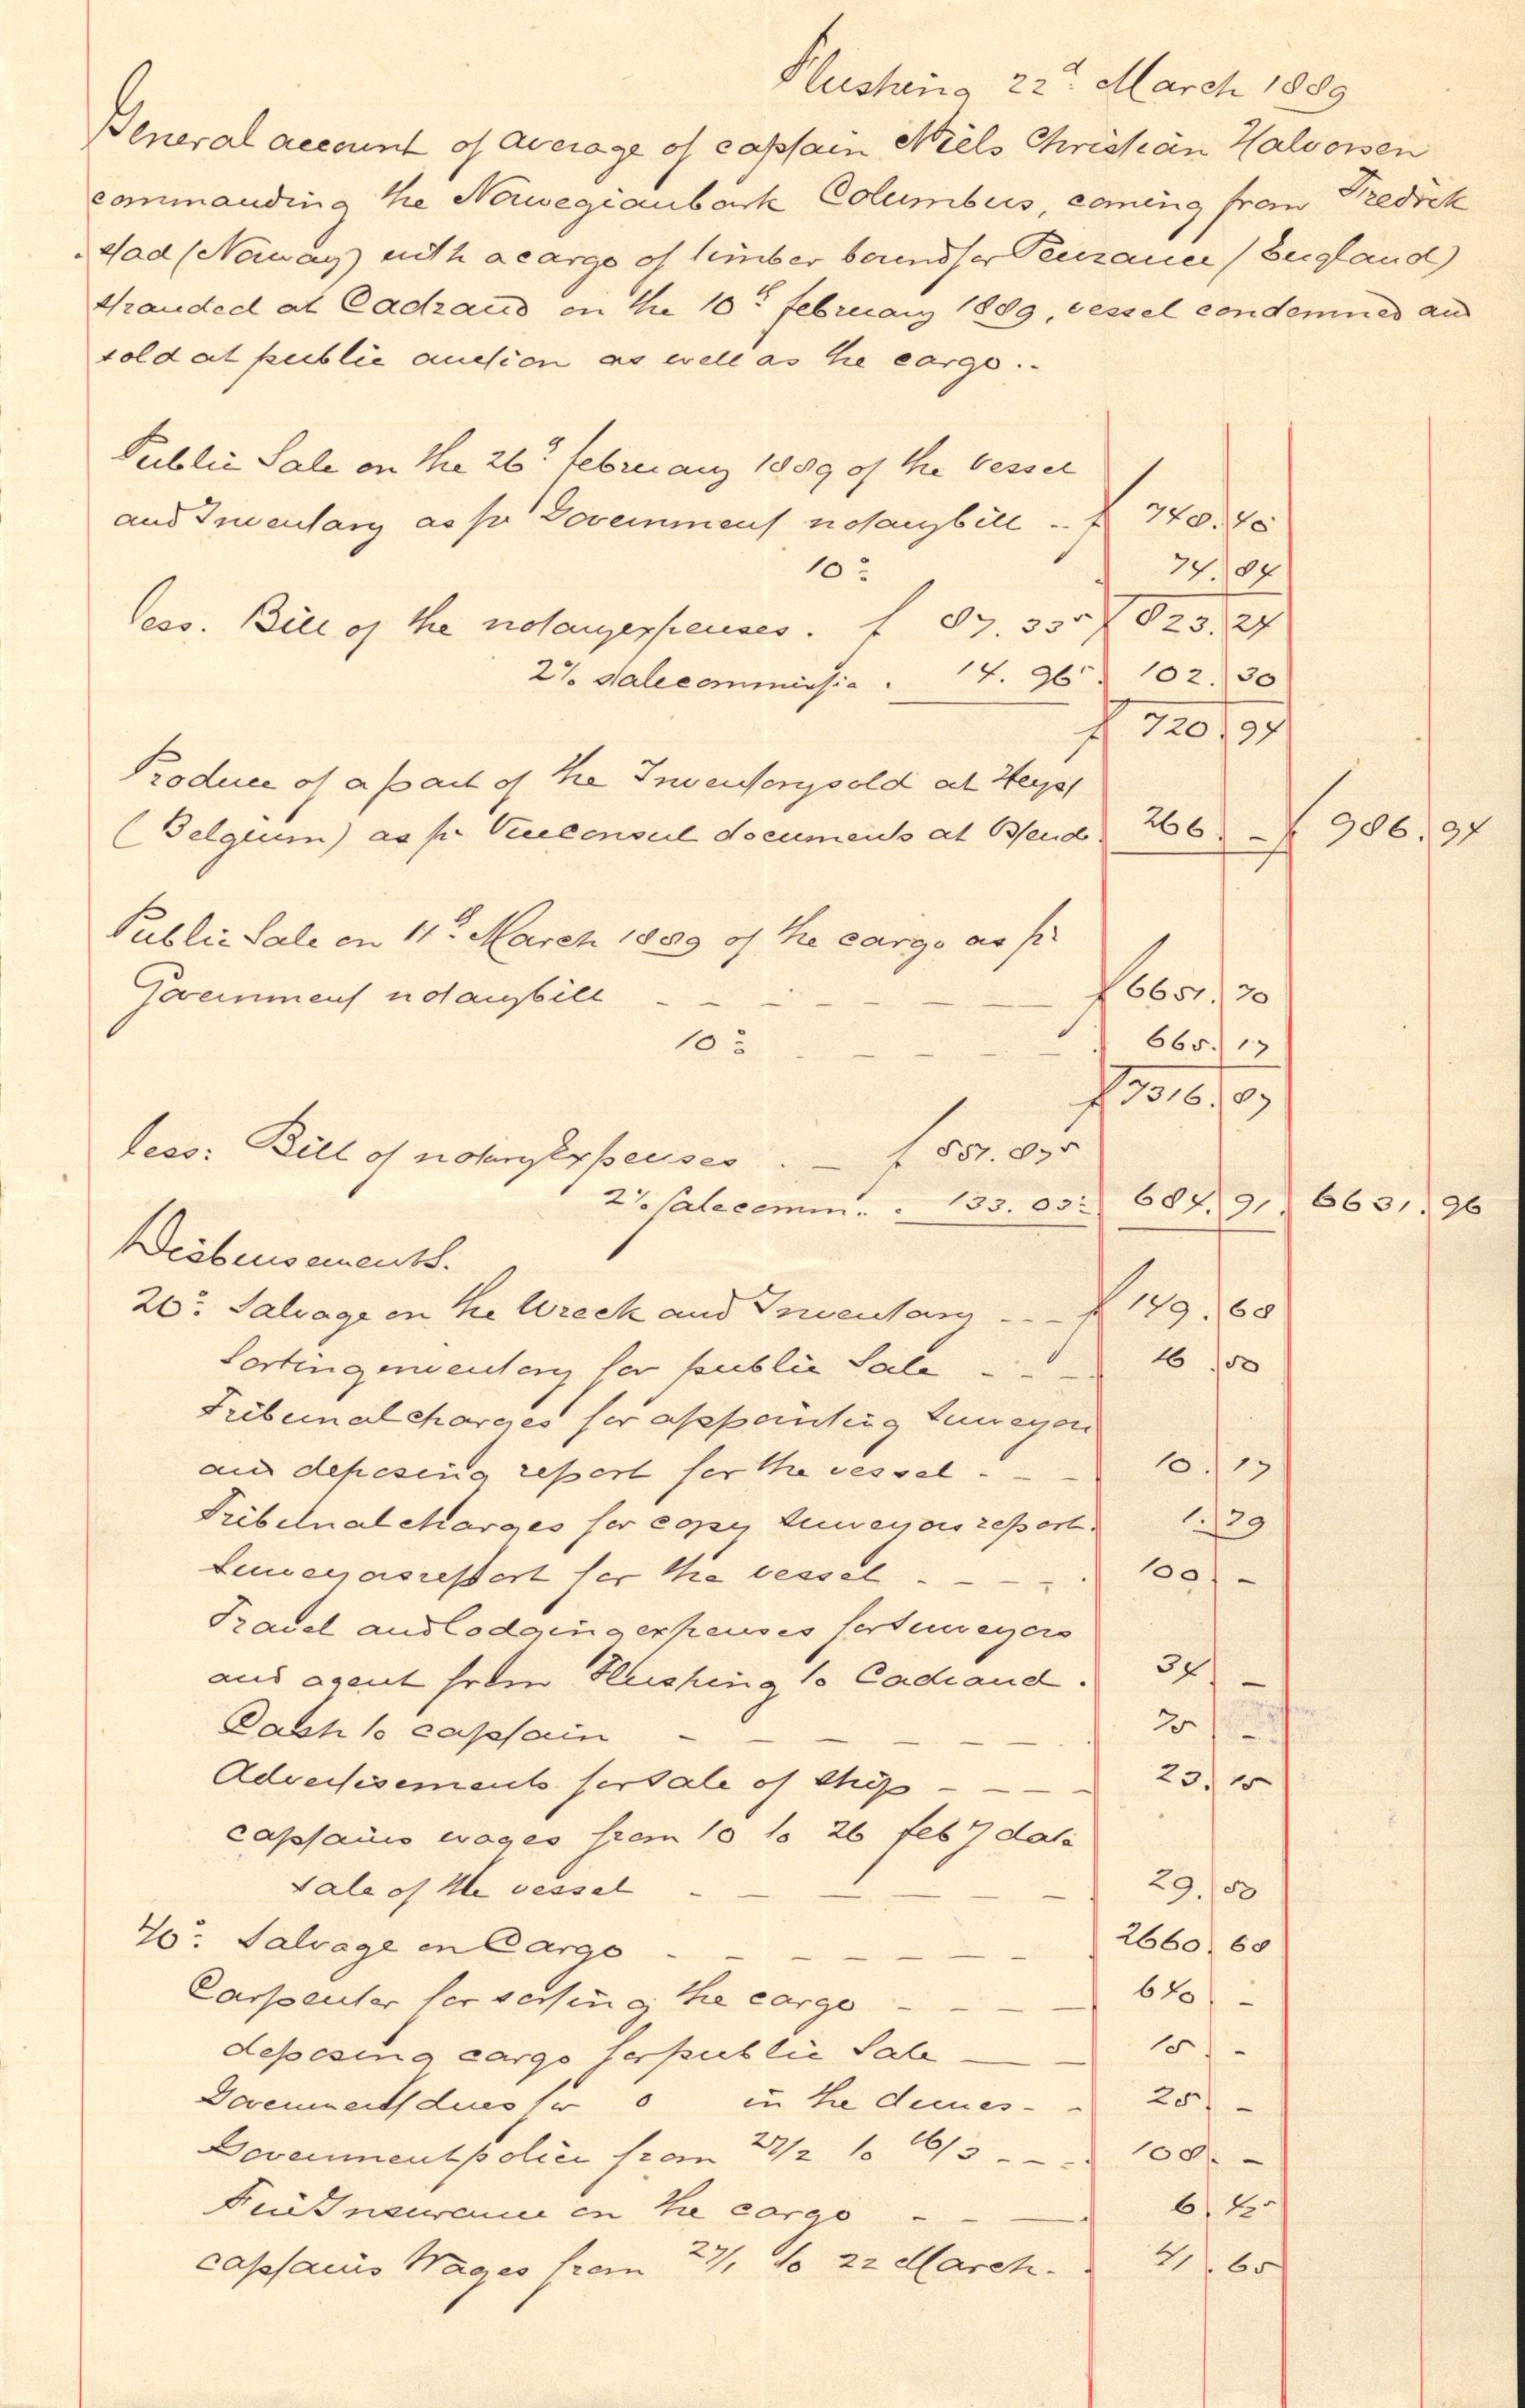 Flushing 22d March 1889
General account of average of captain Niels Christian Halvorsen
commanding the Norwegianbark Columbus, coming from Fredrik
stad (Norway) with a cargo of timber boundfor Penzance (England)
stranded at Cadzand on the 10th february 1889, vessel condemned and
sold at public auction as well as the cargo..
Public Sale on the 26th february 1889 of the vessel
and Inventary as pr Government notarybill .. f 748.40
10% 74.84
less. Bill of the notaryexpenses. f 87.335 f 823.24
2% salecommissio. 14.965 102.30
f 720.94
Produce of a part of the Inventory sold at Heyst
(Belgium) as pr Viceconsul documents at Ostend. 266. - f 986.94
Public Sale on 11th March 1889 of the cargo as pr
Government notarybill - - - - f 6651.70
10% - - - 665.17
f 7316.87
less: Bill of notaryExpenses . - f 551.875
2% Salecomm. . 133.035 684.91 6631.96
Disbursements.
20% Salvage on the Wreck and Inventary - - - f 149.68
Sorting inventory for public Sale - - - 16.50
Tribunal charges for appointing surveyors
and deposing report for the vessel . - - 10.17
Tribunal charges for copy surveyors report. 1.29
Surveyorsreport for the vessel . - - - 100. -
Travel and lodgingexpenses for surveyers
and agent from Flushing to Cadzand. 34. -
Cash to captain - - - - 75. -
Advertisements for sale of ship - - - 23.15
captains wages from 10 to 26 feby date
sale of the vessel - - - - 29.50
40% Salvage on Cargo - - - - 2660.68
Carpenter for sorting the cargo - - - 640. -
deposing cargo for public Sale - - 15. -
Governmentsdues for o in the dunes - - 25. -
Governmentpolice from 27/2 to 16/3 - - - 108. -
Fire Insurance on the cargo - - - 6.425
captains Wages from 27/2 to 22 March. 41.65